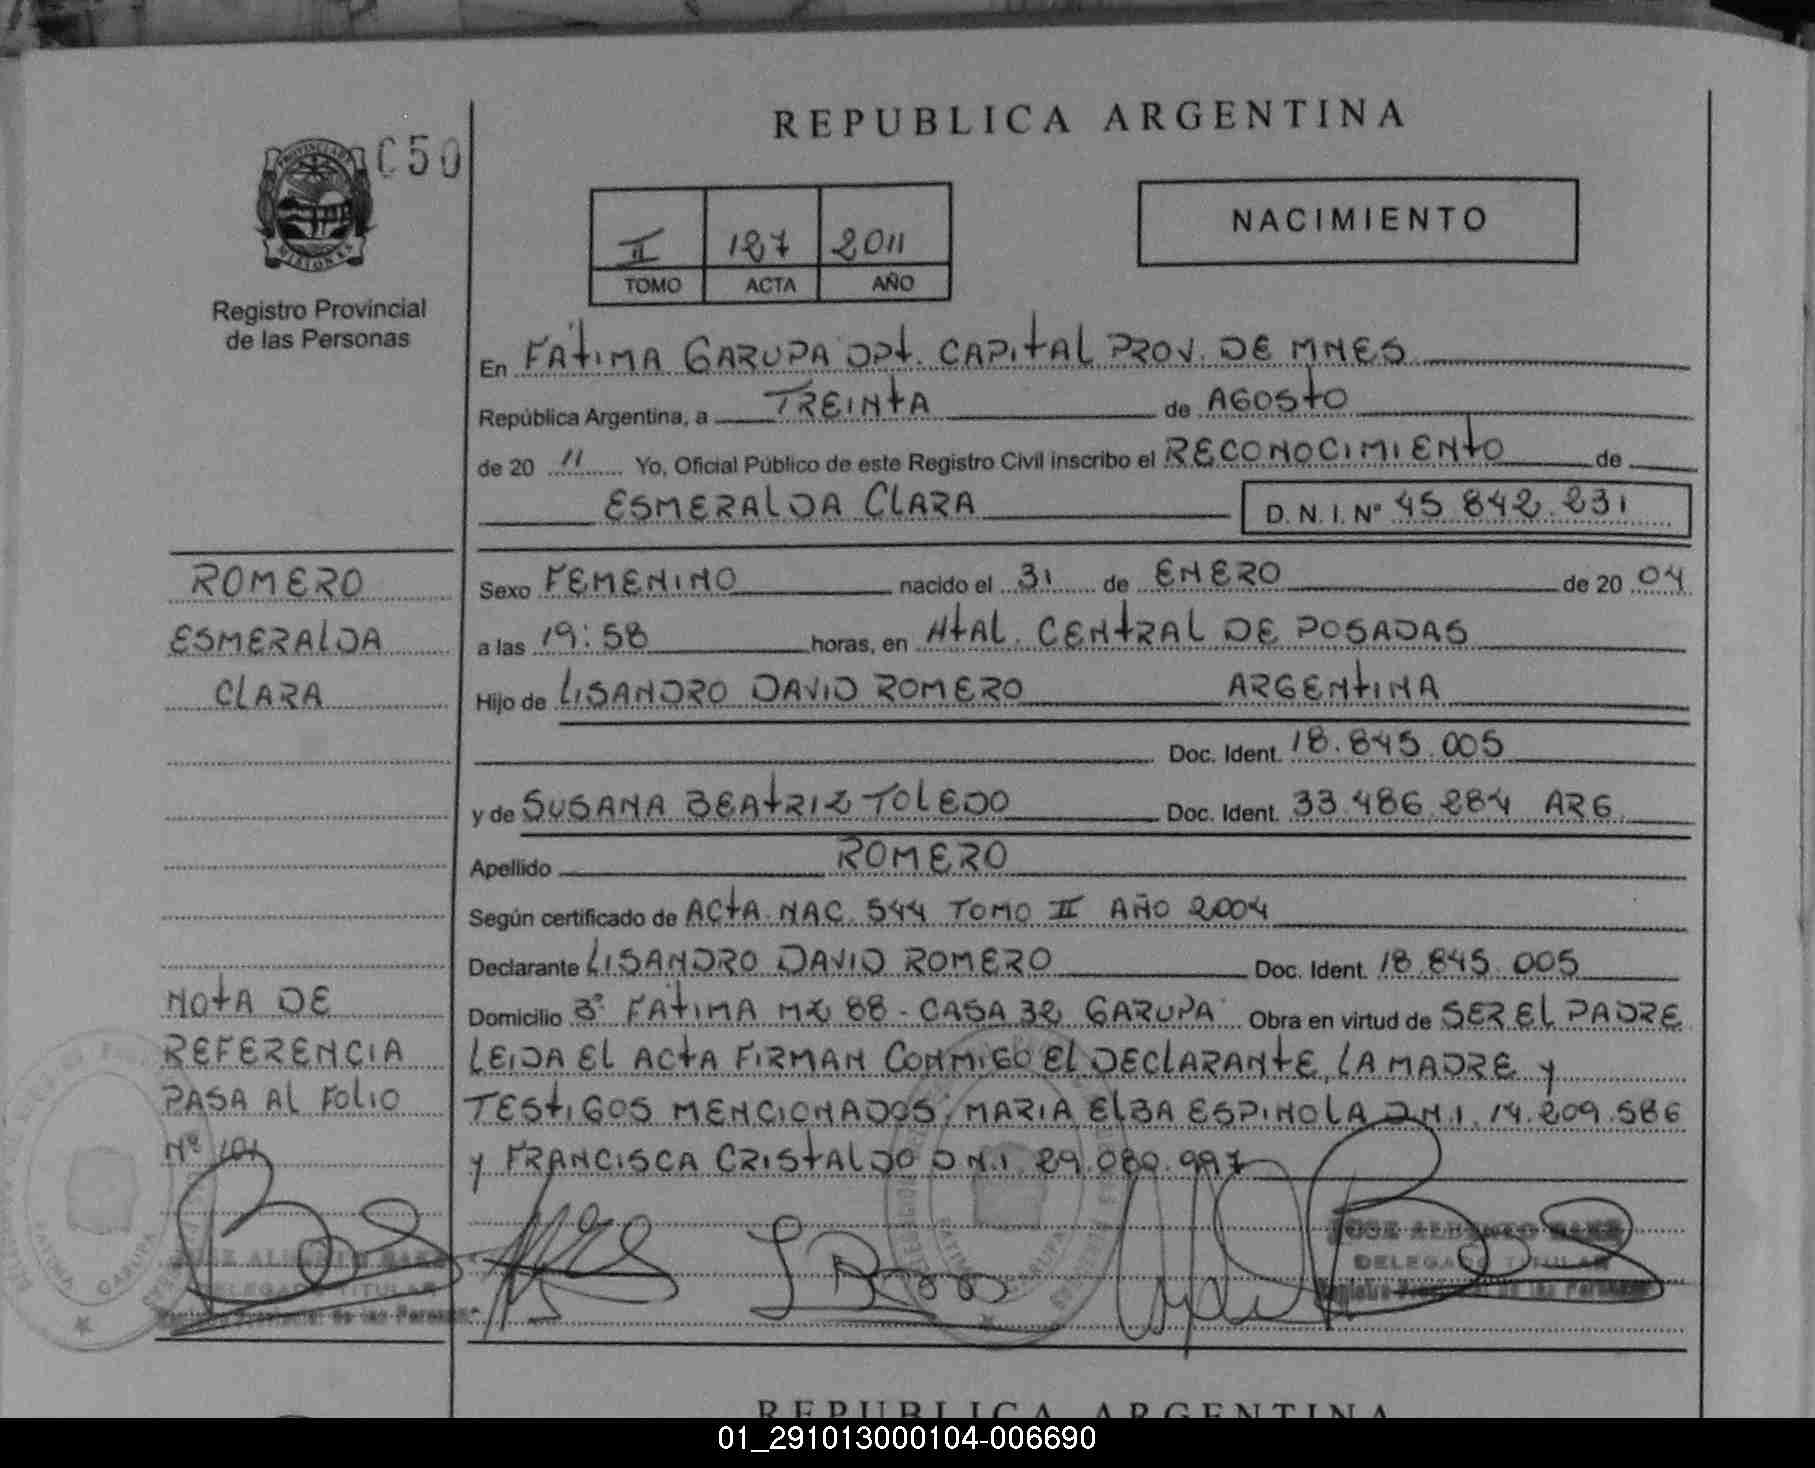 REPUBLICA ARGENTINA
C50
PROVINCIA DE MISIONES
Registro Provincial
de las Personas
II 127 2011
TOMO ACTA AÑO
NACIMIENTO
En FATIMA GARUPA DPt. CAPITAL PROV. DE MNES
República Argentina, a TREINTA de AGOSTO
de 20 11 Yo, Oficial Público de este Registro Civil inscribo el RECONOCIMIENTO de
ESMERALDA CLARA D. N. I. Nº 45.842.231
ROMERO
ESMERALDA
CLARA
Sexo FEMENINO nacido el 31 de ENERO de 20 04
a las 19:58 horas, en HtAL. CENTRAL DE POSADAS
Hijo de LISANDRO DAVID ROMERO ARGENTINA
Doc. Ident. 18.845.005
y de SUSANA BEATRIZ TOLEDO Doc. Ident. 33.486.284 ARG
Apellido ROMERO
Según certificado de ACTA NAC. 544 TOMO II AÑO 2004
Declarante LISANDRO DAVID ROMERO Doc. Ident. 18.845.005
Domicilio Bº FATIMA MZ 88 - CASA 32 GARUPA Obra en virtud de SER EL PADRE
LEIDA EL ACTA FIRMAN CONMIGO EL DECLARANTE, LA MADRE y
TESTIGOS MENCIONADOS. MARIA ELBA ESPINOLA D.N.I. 14.209.586
y FRANCISCA CRISTALDO D.N.I. 29.080.997
NOTA DE
REFERENCIA
PASA AL FOLIO
Nº 101
JOSE ALBERTO BAEZ
DELEGADO TITULAR
Registro Provincial de las Personas
JOSE ALBERTO BAEZ
DELEGADO TITULAR
Registro Provincial de las Personas
FATIMA GARUPA
REPUBLICA ARGENTINA
01_291013000104-006690